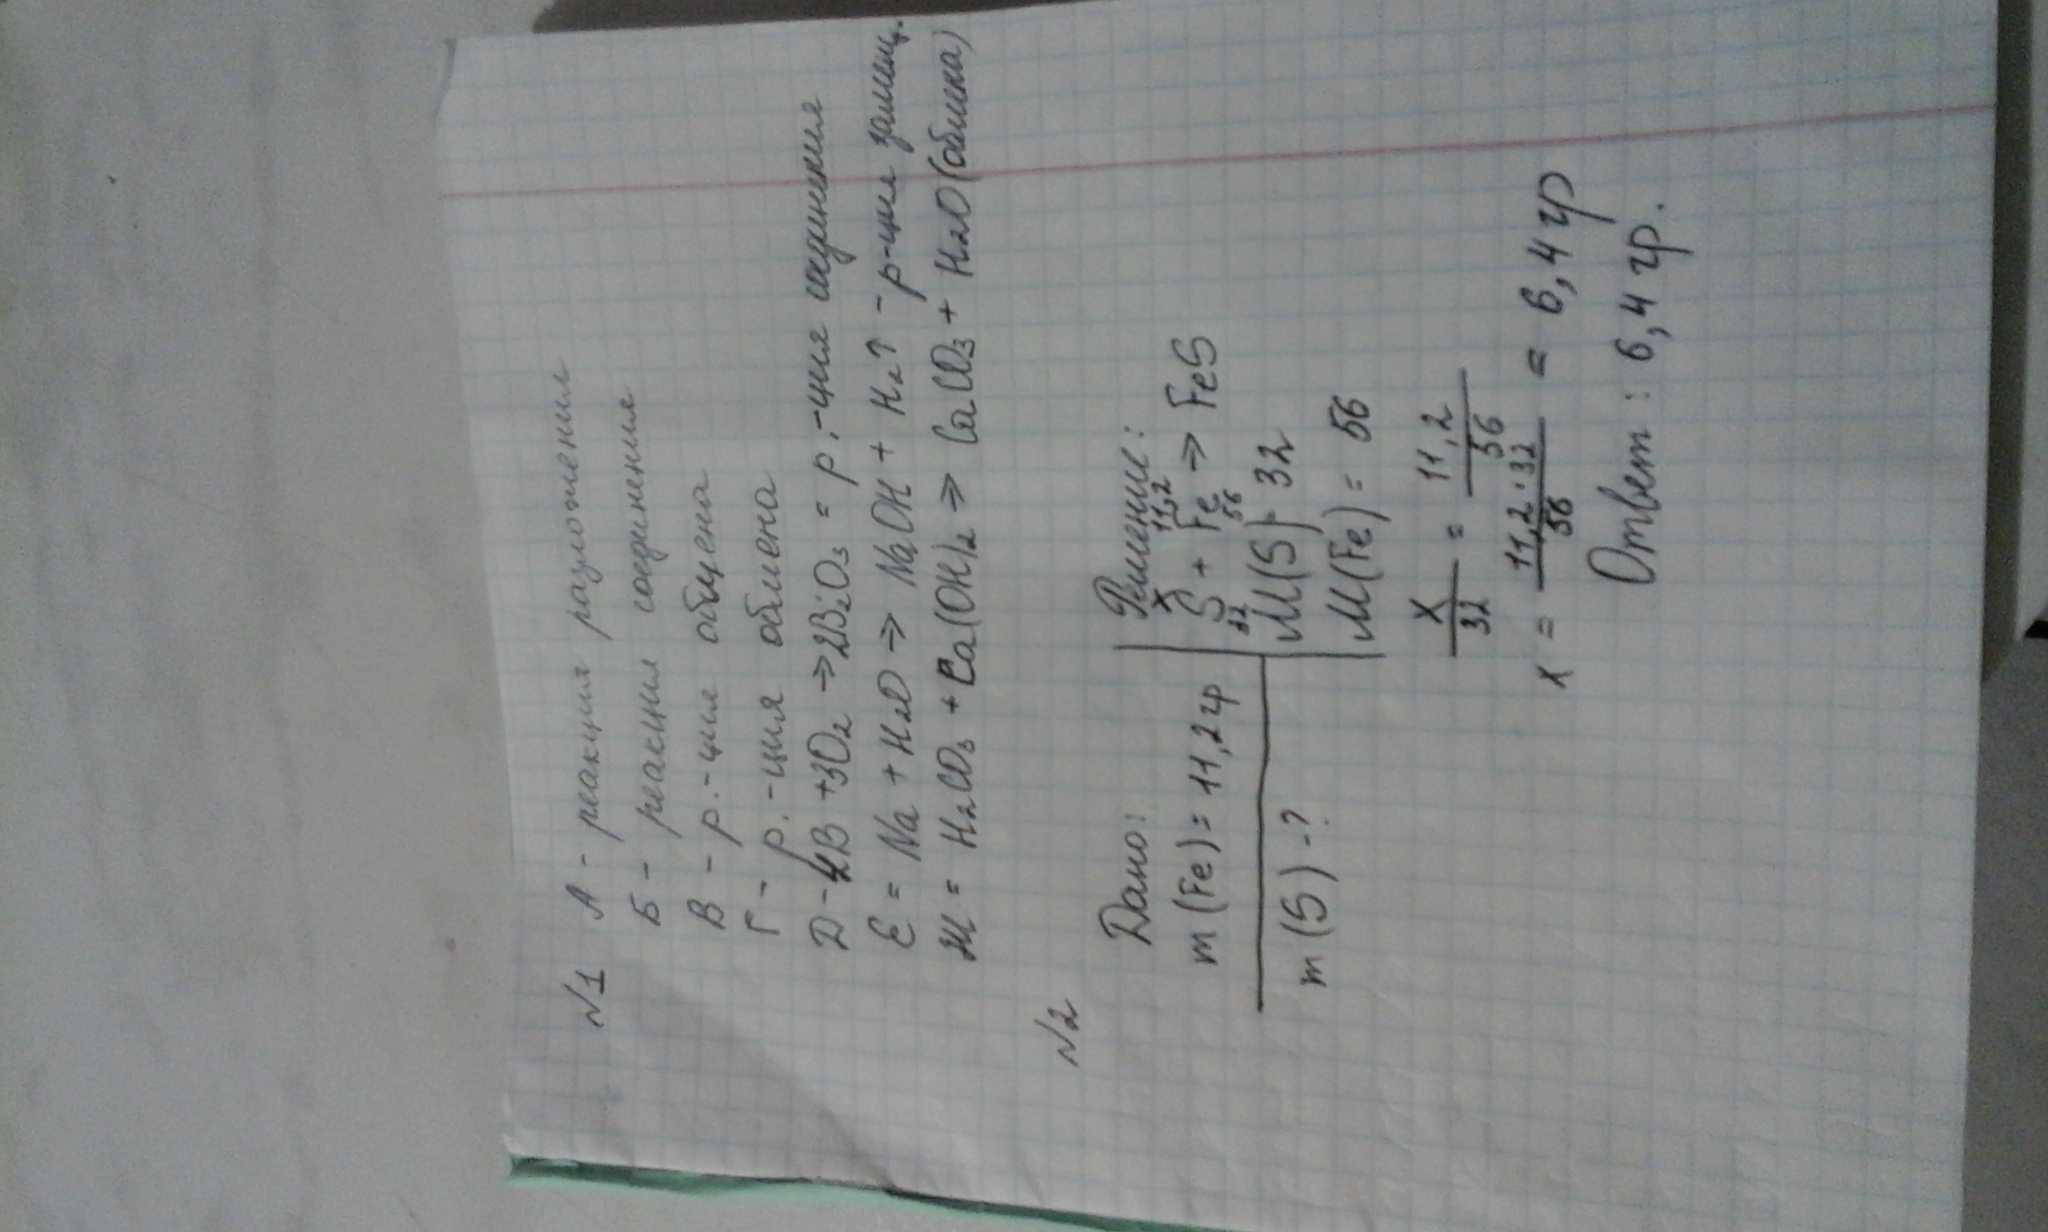 №1 А - реакция разложения
Б - реакция соединения
В - р.-ция обмена
Г - р.-ция обмена
Д - 4B + 3O₂ → 2B₂O₃ = р.-ция соединения
Е = Na + H₂O → NaOH + H₂↑ - р-ция замещ.
Ж = H₂CO₃ + Ca(OH)₂ → CaCO₃ + H₂O (обмена)
№2
Дано:
m(Fe) = 11,2 гр
m(S) - ?
Решение:
x 11,2
S + Fe → FeS
32 56
M(S) = 32
M(Fe) = 56
x/32 = 11,2/56
x = 11,2·32/56 = 6,4 гр
Ответ: 6,4 гр.